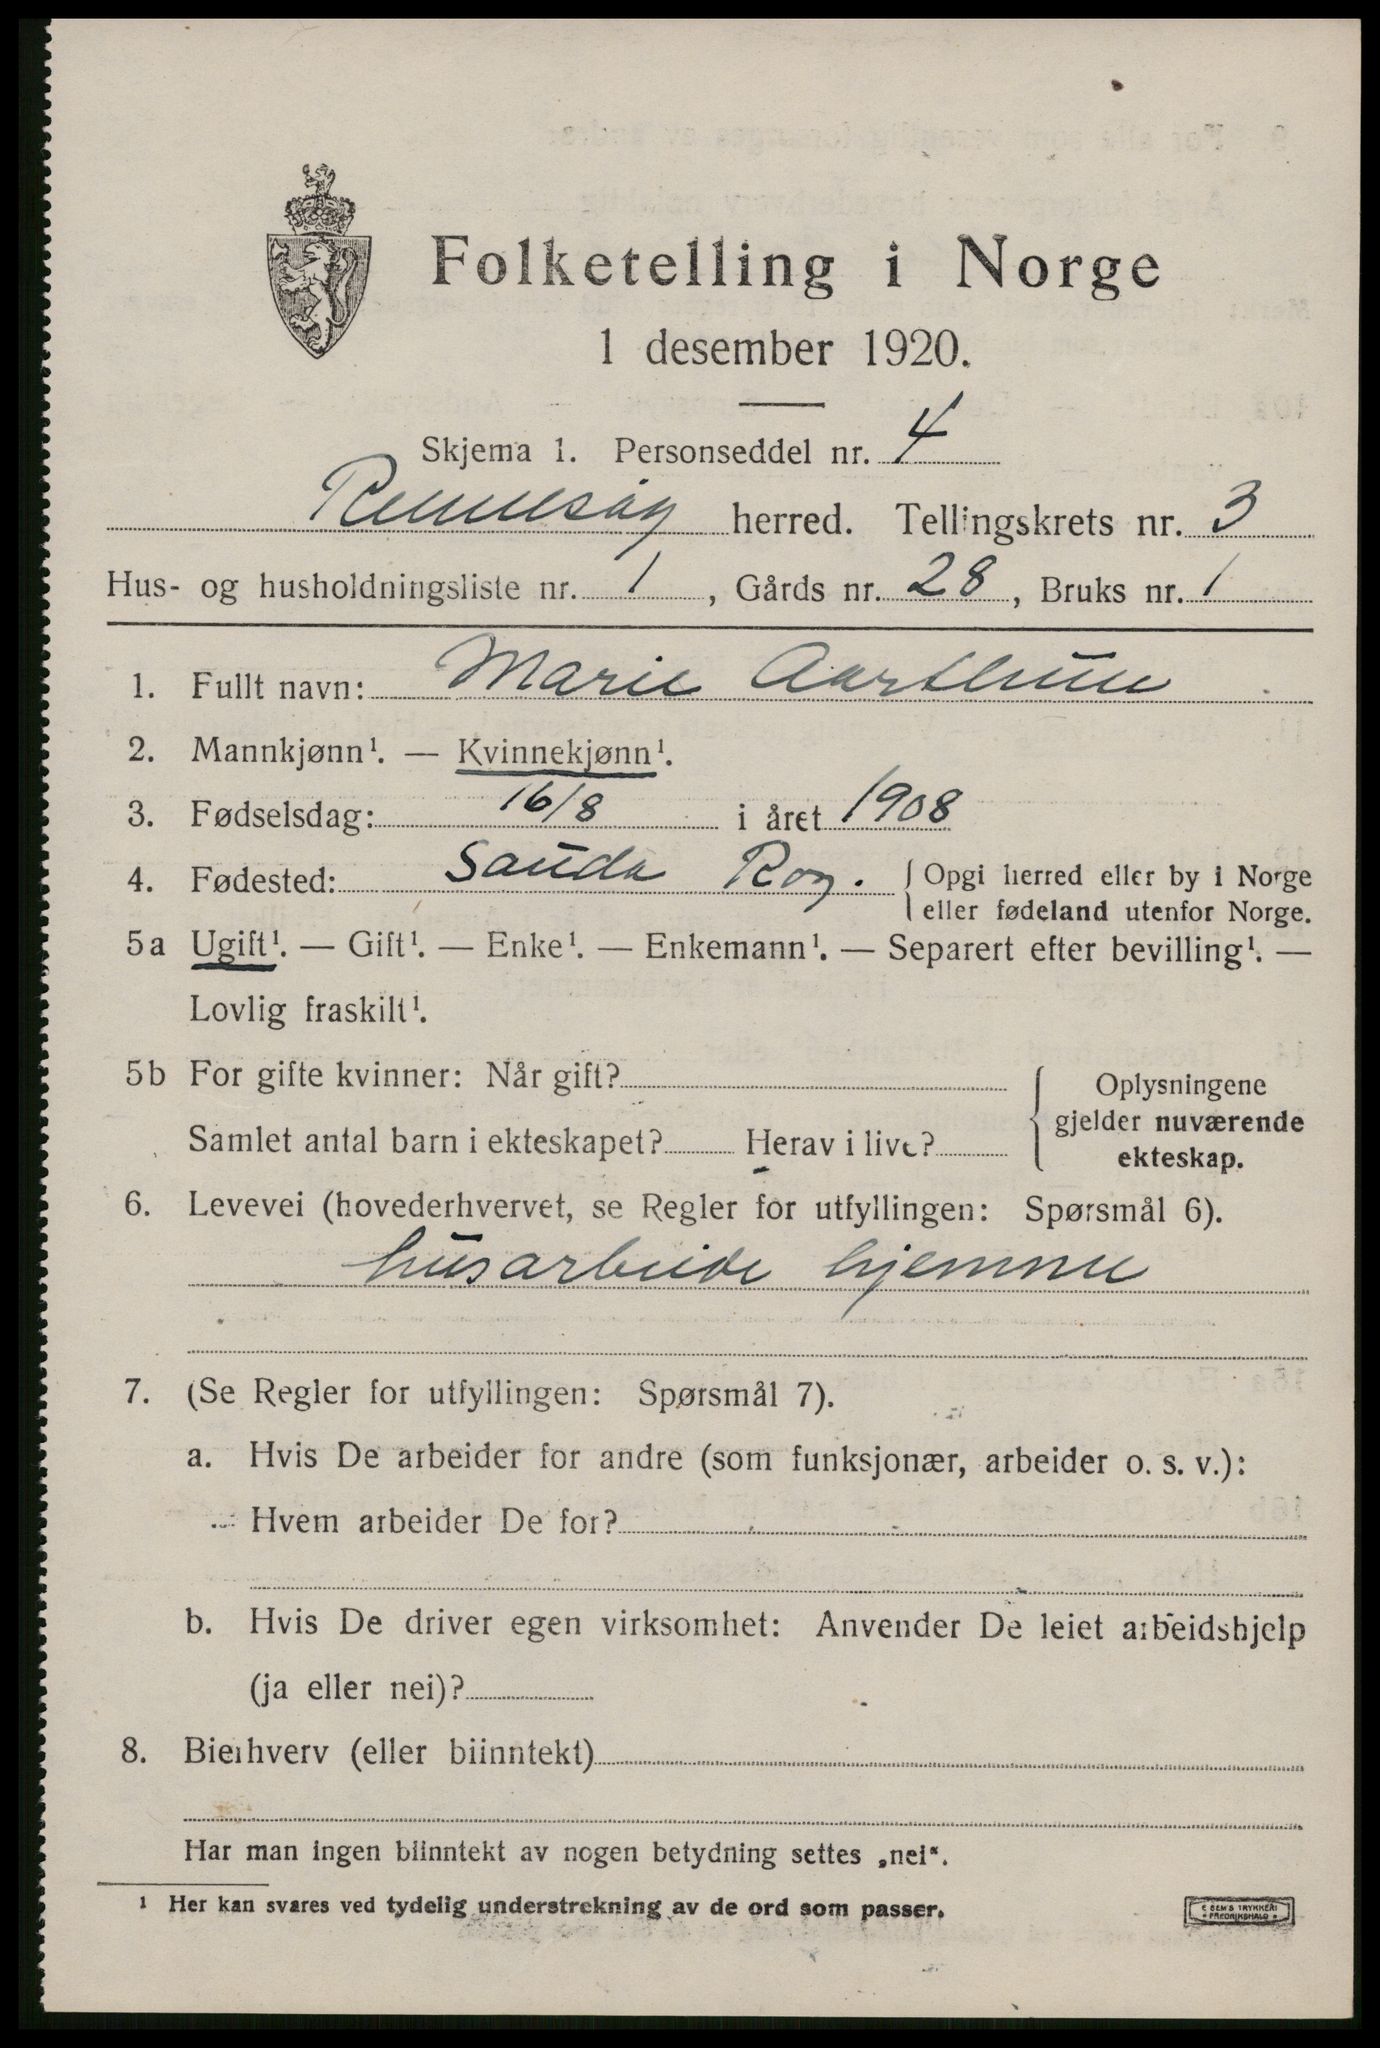 Folketelling i Norge
1 desember 1920.
Skjema 1. Personseddel nr. 4
Rennesøy herred. Tellingskrets nr. 3
Hus- og husholdningsliste nr. 1, Gårds nr. 28, Bruks nr. 1
1. Fullt navn: Marie Aarthun
2. Mannkjønn¹. — Kvinnekjønn¹.
3. Fødselsdag: 16/8 i året 1908
4. Fødested: Sauda Rog. { Opgi herred eller by i Norge
eller fødeland utenfor Norge.
5a Ugift¹. — Gift¹. — Enke¹. — Enkemann¹. — Separert efter bevilling¹. —
Lovlig fraskilt¹.
5b For gifte kvinner: Når gift?
Samlet antal barn i ekteskapet? Herav i live?
{ Oplysningene
gjelder nuværende
ekteskap.
6. Levevei (hovederhvervet, se Regler for utfyllingen: Spørsmål 6).
husarbeide hjemme
7. (Se Regler for utfyllingen: Spørsmål 7).
a. Hvis De arbeider for andre (som funksjonær, arbeider o. s. v.):
Hvem arbeider De for?
b. Hvis De driver egen virksomhet: Anvender De leiet arbeidshjelp
(ja eller nei)?
8. Bierhverv (eller biinntekt)
Har man ingen biinntekt av nogen betydning settes „nei".
¹ Her kan svares ved tydelig understrekning av de ord som passer.
E SEM'S TRYKKERI
FREDRIKSHALD